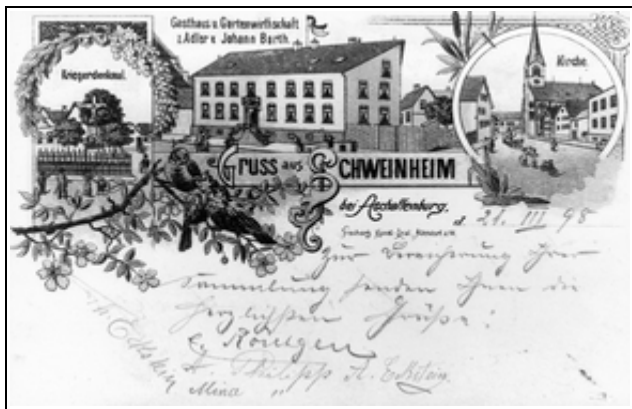 Gasthaus u. Gartenwirthschaft
z. Adler v. Johann Barth.
Kriegerdenkmal.
Kirche.
Gruss aus Schweinheim
bei Aschaffenburg.
d. 21. III 98
zur Bereicherung Ihrer
Sammlung senden Ihnen die
herzlichsten Grüße!
Röntgen
Eckstein
Philipp A. Eckstein
Mina "